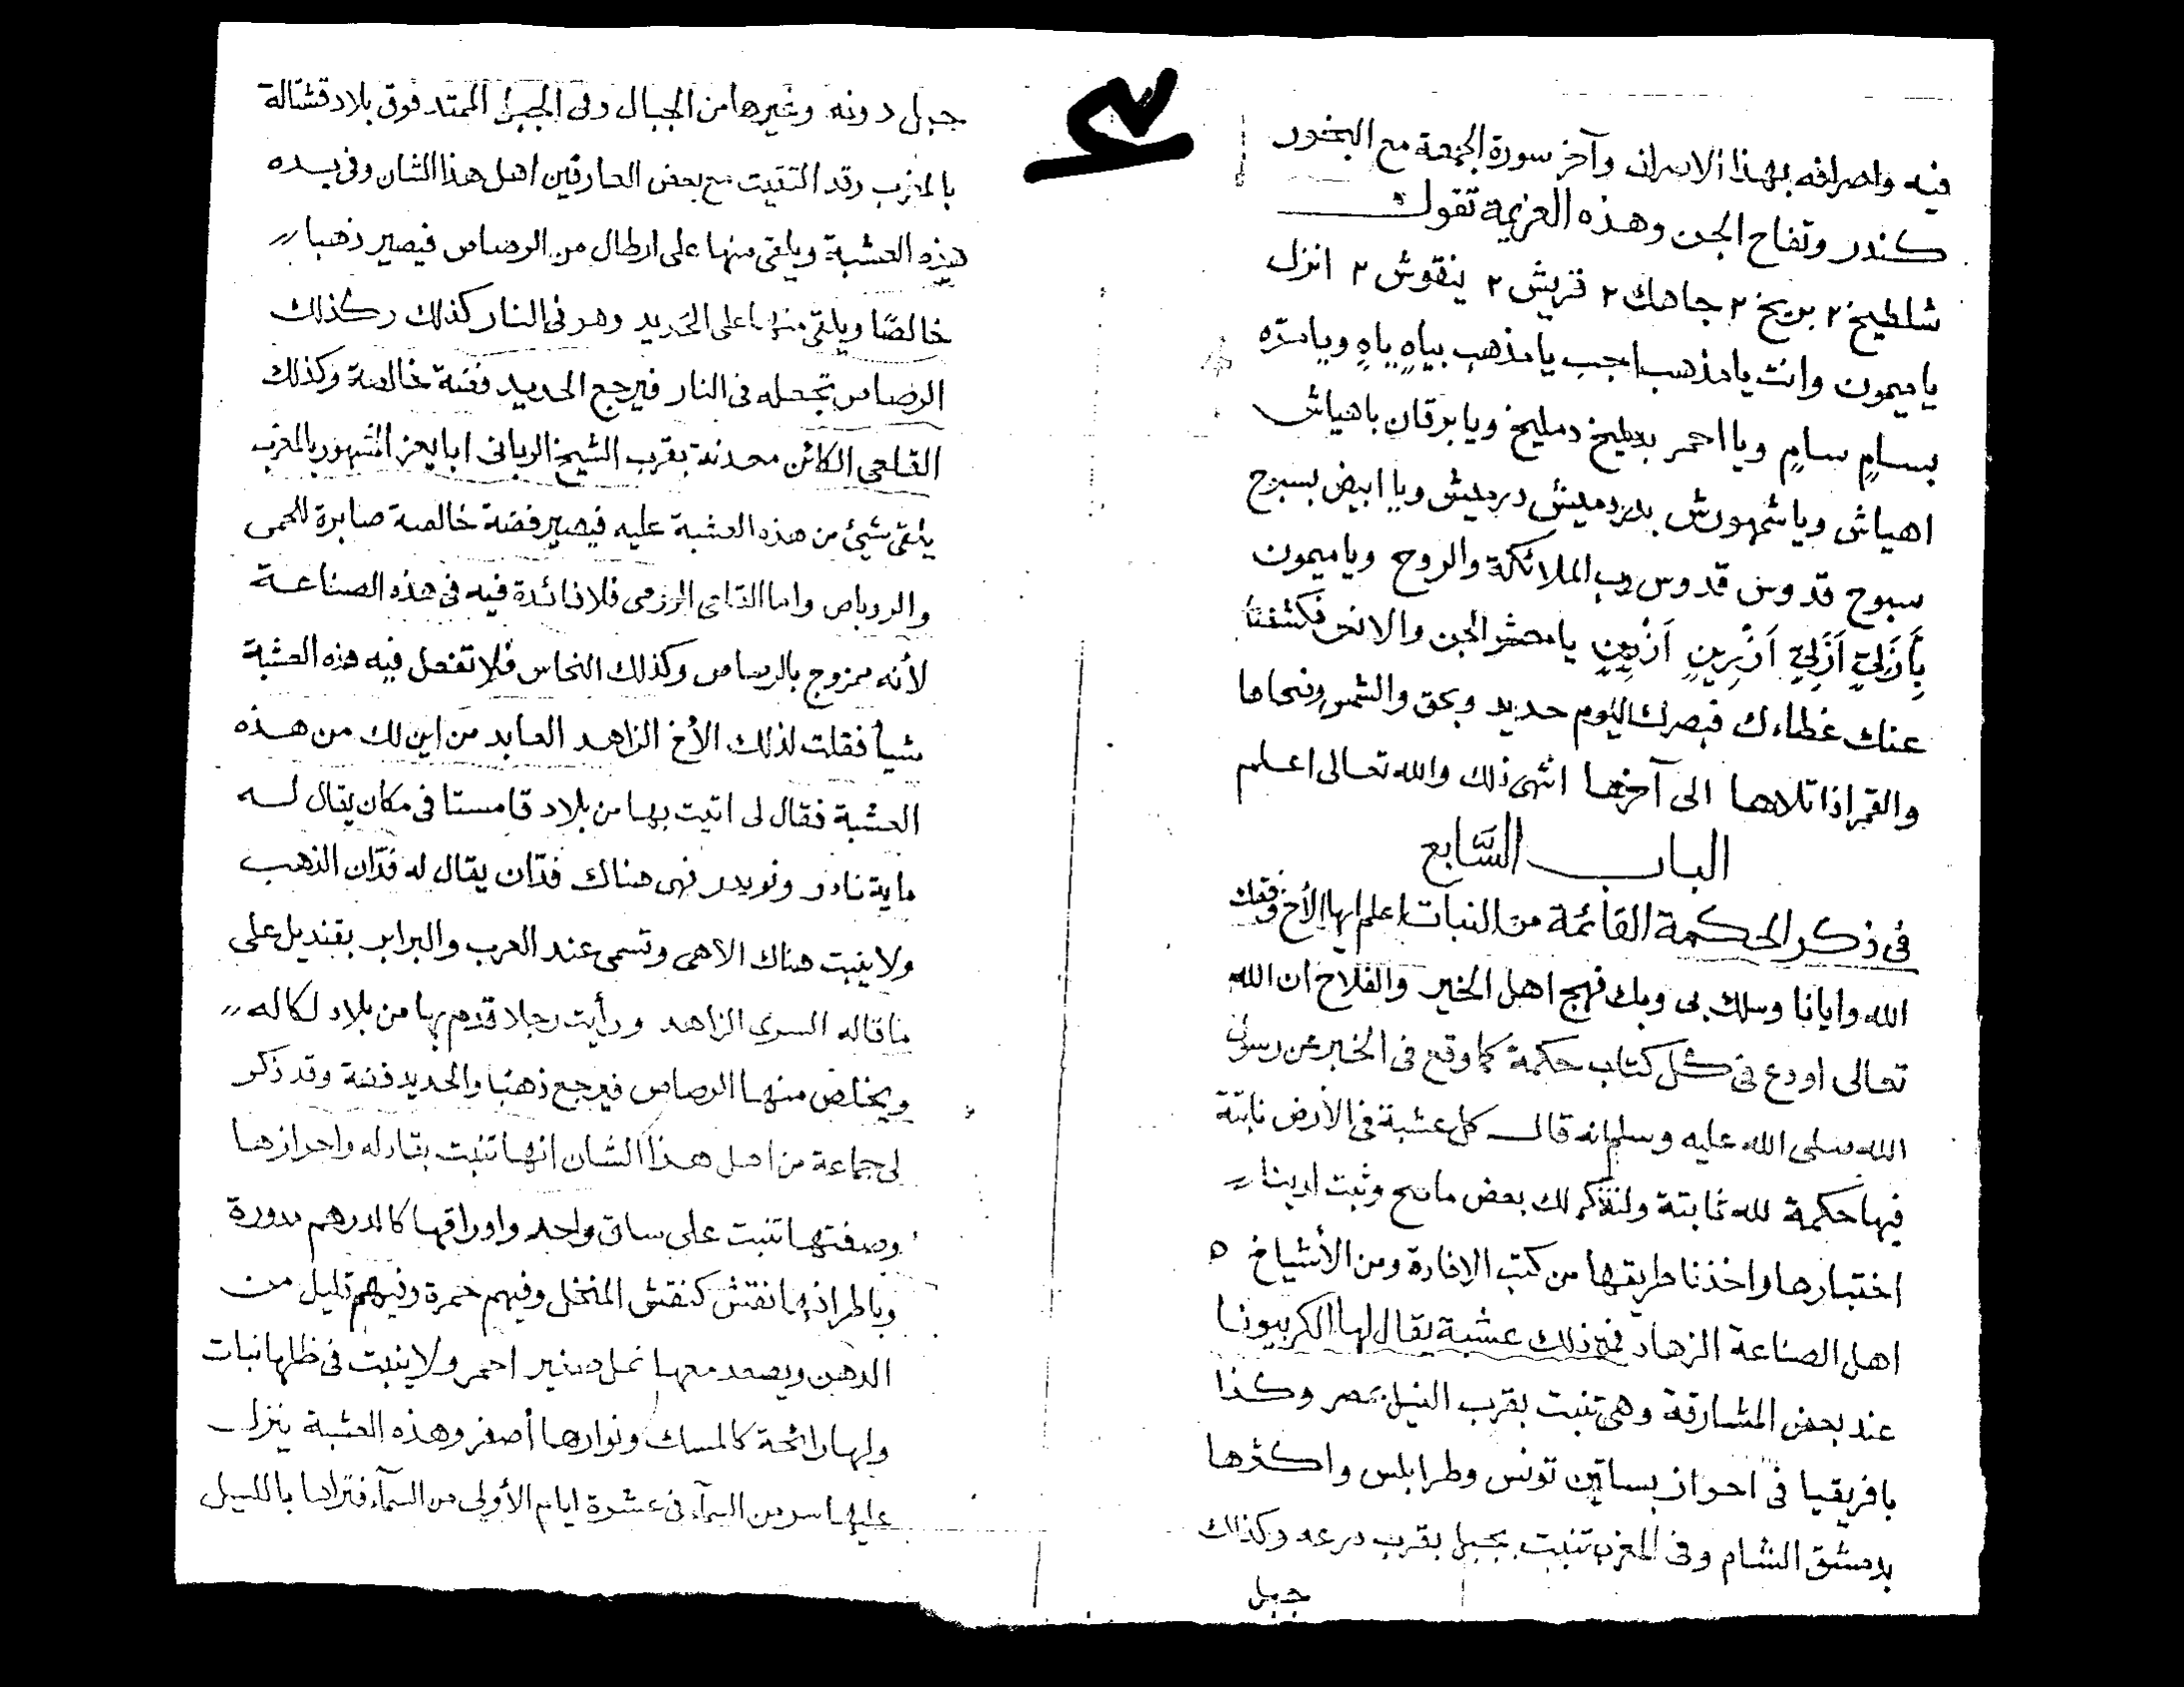 فيه واصرافه بهذا الاسراف وآخر سورة الجمعة مع البخور
كندر وتفاح الجن وهذه العزيمة تقول
شلطيخ ٢ بريخ ٢ جاهك ٢ قريش ٢ ينقوش ٢ انزل
يا ميمون وانت يا مذهب اجب يا مذهب بياهٍ ياهٍ ويا مرّه
بسامٍ سامٍ ويا احمر بدمليخ دمليخ ويا برقان باهياش
اهياش ويا شمهورش بدردميش دردميش ويا ابيض بسبوح
سبوح قدوس قدوس رب الملائكة والروح ويا ميمون
بِأَزَلِيٍ اَزَلِيٍ اَزْبِرِينٍ اَزْبِرِينٍ يا معشر الجن والانس فكشفنا
عنك غطاءك فبصرك اليوم حديد وبحق والشمس وضحاها
والقمر اذا تلاها الى آخرها انتهى ذلك والله تعالى اعلم
الباب السَّابع
فى ذكر الحكمة القائمة من النبات اعلم ايها الأخ وفقك
الله وايانا وسلك بى وبك نهج اهل الخير والفلاح ان الله
تعالى اودع فى كل كتاب حكمة كما وقع فى الخبر عن رسول
الله صلى الله عليه وسلم انه قال كل عشبة فى الأرض نابتة
فيها حكمة لله ثابتة ولنذكر لك بعض ما صح وثبت لدينا
اختبارها واخذنا طريقها من كتب الافادة ومن الأشياخ
اهل الصناعة الزهاد فمن ذلك عشبة يقال لها الكربيونا
عند بعض المشارقة وهى تنبت بقرب النيل بمصر وكذا
بافريقيا فى احواز بساتين تونس وطرابلس واكثرها
بدمشق الشام وفى المغرب تنبت بجبل بقرب درعه وكذلك
جبل
جبل دونه وغيرها من الجبال وفى الجبل الممتد فوق بلاد قشتالة
بالمغرب وقد التقيت مع بعض العارفين اهل هذا الشان وفى يده
هذه العشبة ويلقى منها على ارطال من الرصاص فيصير ذهبا
خالصًا ويلقى منها على الحديد وهو فى النار كذلك وكذلك
الرصاص تجعله فى النار فيرجع الحديد فضة خالصة وكذلك
القلعى الكائن معدنه بقرب الشيخ الربانى ابا يعز المشهور بالمغرب
يلقى شيئ من هذه العشبة عليه فيصير فضة خالصة صابرة للحمى
والروباص واما القلعى الرومى فلا فائدة فيه فى هذه الصناعة
لأنه ممزوج بالرصاص وكذلك النحاس فلا تفعل فيه هذه العشبة
شيأ فقلت لذلك الأخ الزاهد العابد من اين لك من هذه
العشبة فقال لى اتيت بها من بلاد قامستا فى مكان يقال له
ماية نادر ونويدر فهى هناك فدّان يقال له فدّان الذهب
ولا ينبت هناك الاهى وتسمى عند العرب والبرابر بقنديل على
ما قاله السرى الزاهد ورأيت رجلا قدم بها من بلاد لكاله
ويخلص منها الرصاص فيرجع ذهبا والحديد فضة وقد ذكر
لى جماعة من اهل هذا الشان انها تنبت بتادله واحوازها
وصفتها تنبت على ساق واحد واوراقها كالدرهم مدورة
وباطرافها نقش كنقش المنخل وفيهم حمرة وفيهم قليل من
الدهن ويصعد معها نمل صغير احمر ولا ينبت فى ظلها نبات
ولها رائحة كالمسك ونوارها أصفر وهذه العشبة ينزل
عليها سر من السمآء فى عشرة ايام الأولى من السمآء فتراها بالليل